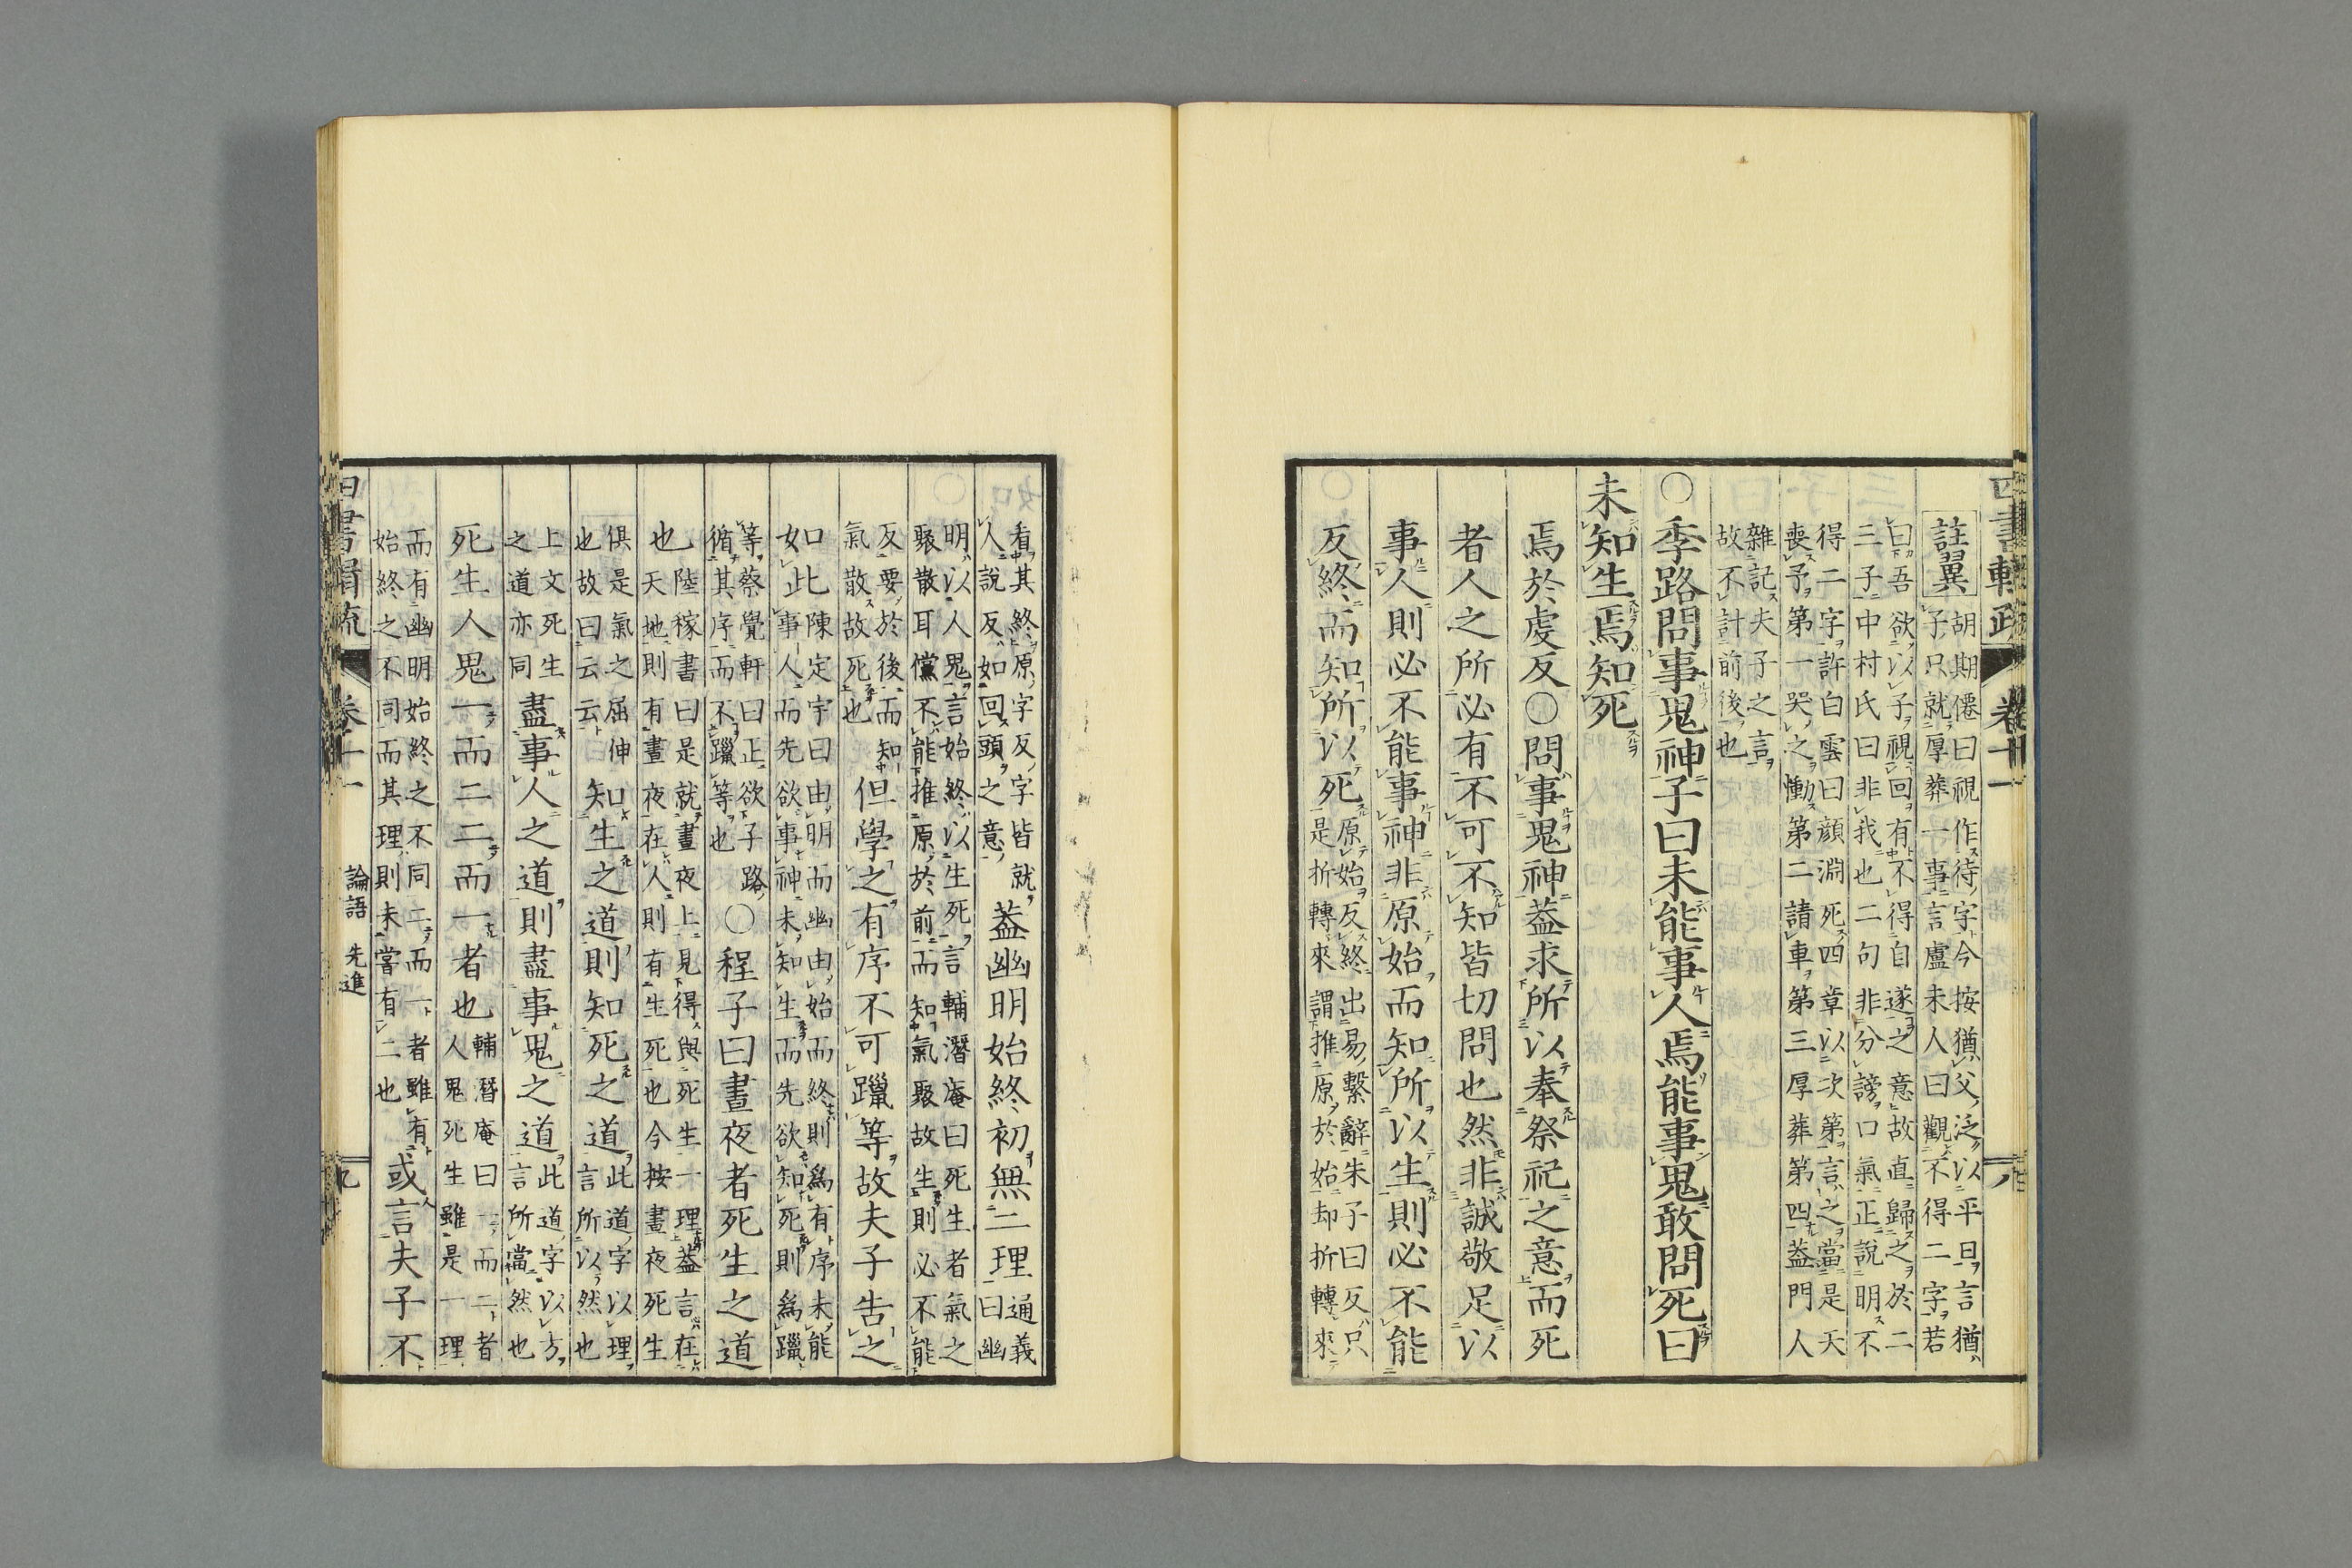 四書輯疏 卷十一
註翼 胡期僊曰視作待字今按猶父泛以平日言猶
子只就厚葬一事言盧未人曰觀不得二字若
曰吾欲以子視回有不得自遂之意故直歸之於二
三子中村氏曰非我也二句非分謗口氣正說明不
得二字許白雲曰顏淵死四章以次第言之當是天
喪予第一哭之慟第二請車第三厚葬第四蓋門人
雜記夫子之言
故不計前後也
○季路問事鬼神子曰未能事人焉能事鬼敢問死曰
未知生焉知死
焉於虔反○問事鬼神蓋求所以奉祭祀之意而死
者人之所必有不可不知皆切問也然非誠敬足以
事人則必不能事神非原始而知所以生則必不能
反終而知所以死原始反終出易繫辭朱子曰反只
是折轉來謂推原於始却折轉來
看其終原字反字皆就
人說反如回頭之意蓋幽明始終初無二理通義
曰幽
明以人鬼言始終以生死言輔潛庵曰死生者氣之
聚散耳儻不能推原於前而知氣聚故生則必不能
反要於後而知
氣散故死也但學之有序不可躐等故夫子告之
如此陳定宇曰由明而幽由始而終則爲有序未能
事人而先欲事神未知生而先欲知死則爲躐
等蔡覺軒曰正欲子路
循其序而不躐等也○程子曰晝夜者死生之道
也陸稼書曰是就晝夜上見得與死生一理蓋言在
天地則有晝夜在人則有生死也今按晝夜死生
俱是氣之屈伸
也故曰云云知生之道則知死之道此道字以理
言所以然也
上文死生
之道亦同盡事人之道則盡事鬼之道此道字以方
言所當然也
死生人鬼一而二二而一者也輔潛庵曰一而二者
人鬼死生雖是一理
而有幽明始終之不同二而一者雖有
始終之不同而其理則未嘗有二也或言夫子不
四書輯疏 卷十一 論語 先進 九